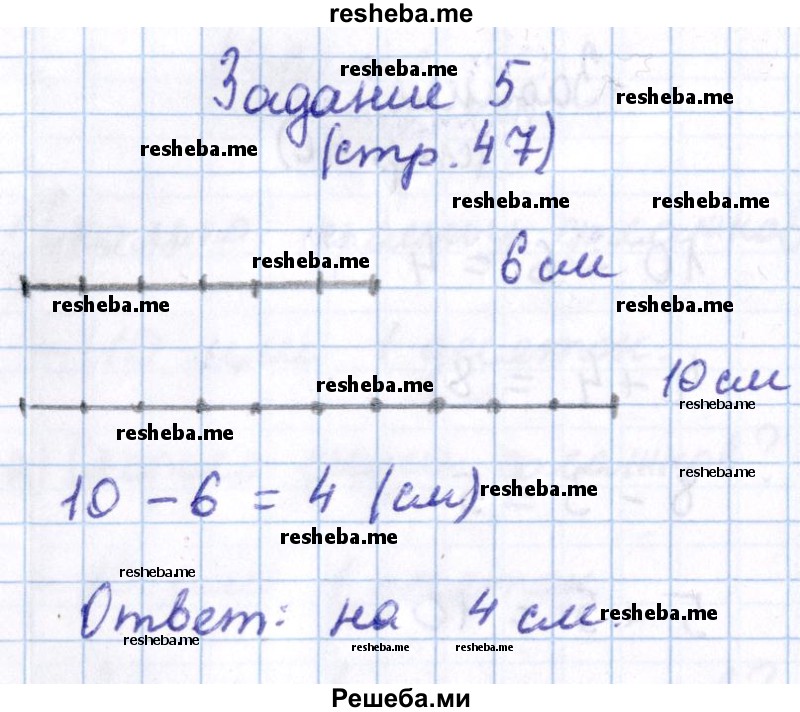 resheba.me
resheba.me
Задание 5
resheba.me
resheba.me
(стр. 47)
resheba.me resheba.me
resheba.me
6 см
resheba.me resheba.me
resheba.me
10 см
resheba.me
resheba.me
resheba.me
10 - 6 = 4 (см)
resheba.me
resheba.me
resheba.me
Ответ: на 4 см.
resheba.me
resheba.me
resheba.me resheba.me
Решеба.ми